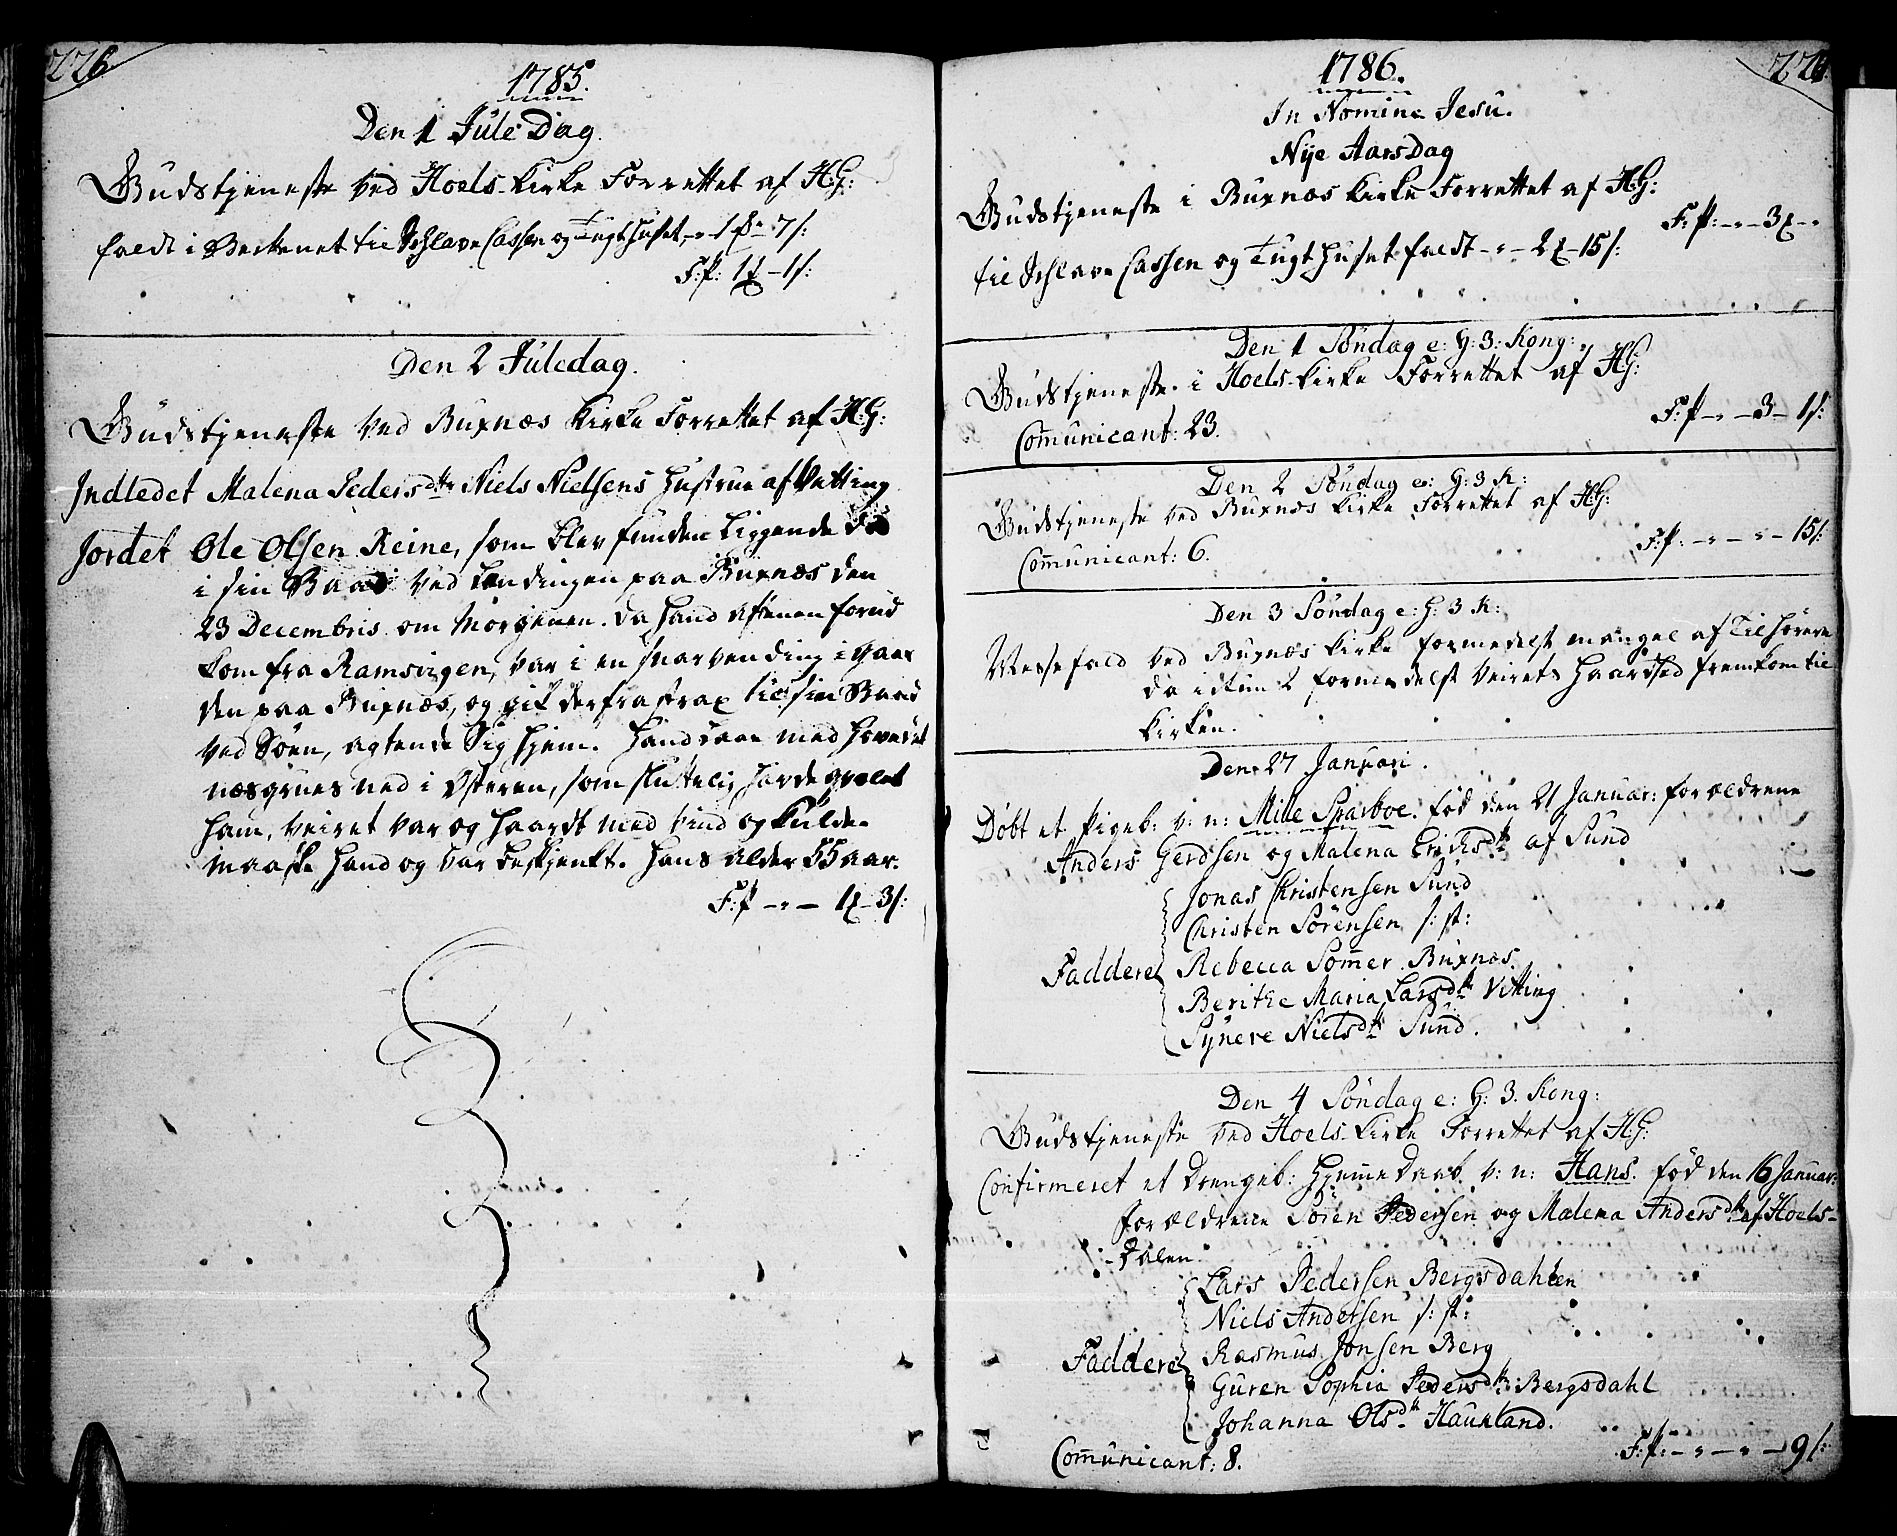 226
1785.
Den 1 Jule Dag.
Gudstjeneste ved Hoels-kirke Forrettet af H:G:
faldt i Beckenet til Schlave Cassen og Tugthuset,
F:P: 1 -1/:
Den 2 Juledag.
Gudstjeneste ved Buxnæs Kirke Forrettet af H:G:
Indledet Malena Pedersdtr Niels Nielsens Hustrue af Vetting
Jordet Ole Olsen Reine, som blev funden liggende død
i sin Baad ved Lendingen paa Buxnæs den
23 Decembris om Morgenen. da hand aftenen forud
kom fra Ramsvigen, var i en snarvending i gaar
den paa Buxnæs, og gik derfra strax til sin Baad
ved Söen, agtende Sig hjem. Hand laae med hovedet
næsgrues ned i Østeren, som sluttelig havde qvalt
ham, veiret var og haardt med vind og kulde.
maaskee hand og var beskjenkt. hans alder 55 aar.
F:P -"- 1 -3/:
1786.
In Nomine Jesu.
Nÿe AarsDag
Gudstjeneste i Buxnæs kirke Forrettet af H:G:
F:P: -"- 3 -"
til Schlave Cassen og Tugthuset faldt -"- 2 -15/:
Den 1 Söndag e: H: 3: Kong:
Gudstjeneste i Hoels-kirke Forrettet af H:G:
F:P -"- 3 - 1/:
Com̅unicant: 23.
Den 2 Söndag e: H: 3 K:
Gudstjeneste ved Buxnæs kirke Forrettet af H:G:
F:P: -"- -"- 15/:
Com̅unicant: 6.
Den 3 Söndag e: H: 3 K:
Messefald ved Buxnæs kirke formedelst mangel af Tilhörere
da ickun 2 formedelst veirets haardhed fremkom til
kirken.
Den 27 Januari.
Döbt et Pigeb: v: n: Mille Sparboe. född den 21 Januar: forældrene
Anders Gerdsen og Malena Ericksdtr af Sund
Jonas Christensen Sund
Christen Sörensen s: st:
Faddere Rebecca Som̅er Buxnæs.
Berithe Maria Larsdtr Vetting
Synere Nielsdtr Sund.
Den 4 Söndag e: H: 3. Kong:
Gudstjeneste ved Hoels-kirke Forrettet af H:G:
Confirmeret et Drengeb: hjem̅e Daab v: n: Hans. föd den 16 Januar:
forældrene Sören Pedersen og Malena Andersdtr af Hoels-
-Dalen.
Lars Pedersen Bergsdahlen
Niels Andersen s: st:
Faddere Rasmus Jonsen Berg
Guren Sophia Pedersdtr: Bergsdahl
Johanna Olsdtr Haukland.
Com̅unicant: 8.
F:P: -"- -"- 9/: